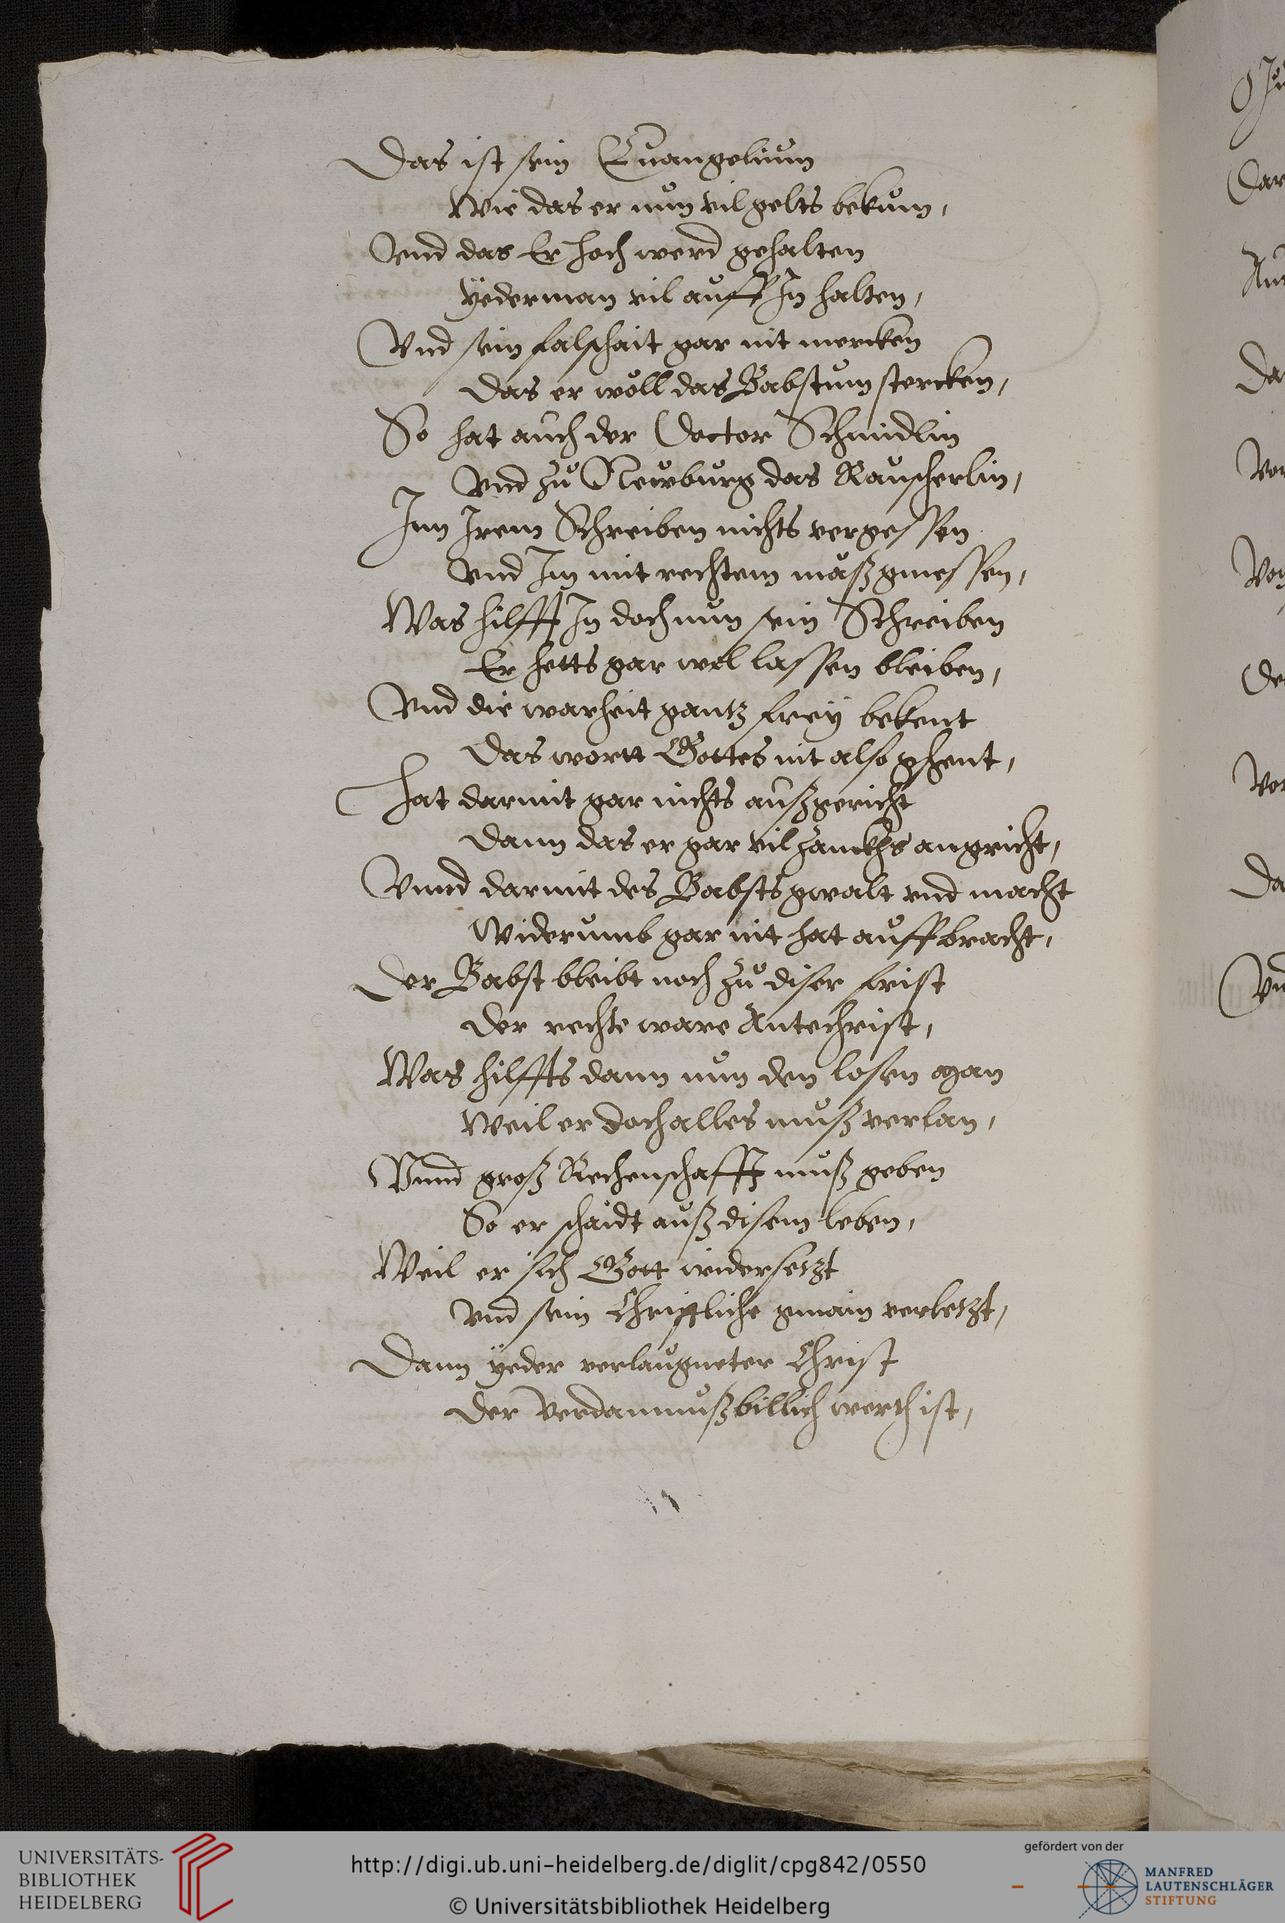 Das ist sein Euangelium
Wie das er nun vil gelts bekum,
Vnd das Er hoch werd gehalten
Yederman vil auff In halten,
Vnd sein falschait gar nit mercken
Das er wöll das Babstum stercken,
So hat auch der Doctor Schmidlin
Vnd zu Newburg das Rauscherlin,
Inn Irem Schreiben nichts vergessen
Vnd Im mit rechtem maß gmessen,
Was hilfft In doch nun sein Schreiben
Er hetts gar wol lassen bleiben,
Vnd die warheit gantz frey bekent
Das wortt Gottes nit also gschent,
Hat darmit gar nichts außgericht
Dann das er gar vil zanckhs angricht,
Vnnd darmit des Babsts gwalt vnd macht
Widerumb gar nit hat auffbracht,
Der Babst bleibt noch zu diser frist
Der rechte ware Antechrist,
Was hilffts dann nun den losen man
Weil er doch alles muß verlan,
Vnnd groß Rechenschafft muß geben
So er schaidt auß disem leben,
Weil er sich Gott widersetzt
Vnd sein Christliche gmain verletzt,
Dann yeder verlaugneter Christ
Der Verdamnuß billich werth ist,
UNIVERSITÄTS-
BIBLIOTHEK
HEIDELBERG
http://digi.ub.uni-heidelberg.de/diglit/cpg842/0550
© Universitätsbibliothek Heidelberg
gefördert von der
MANFRED
LAUTENSCHLÄGER
STIFTUNG